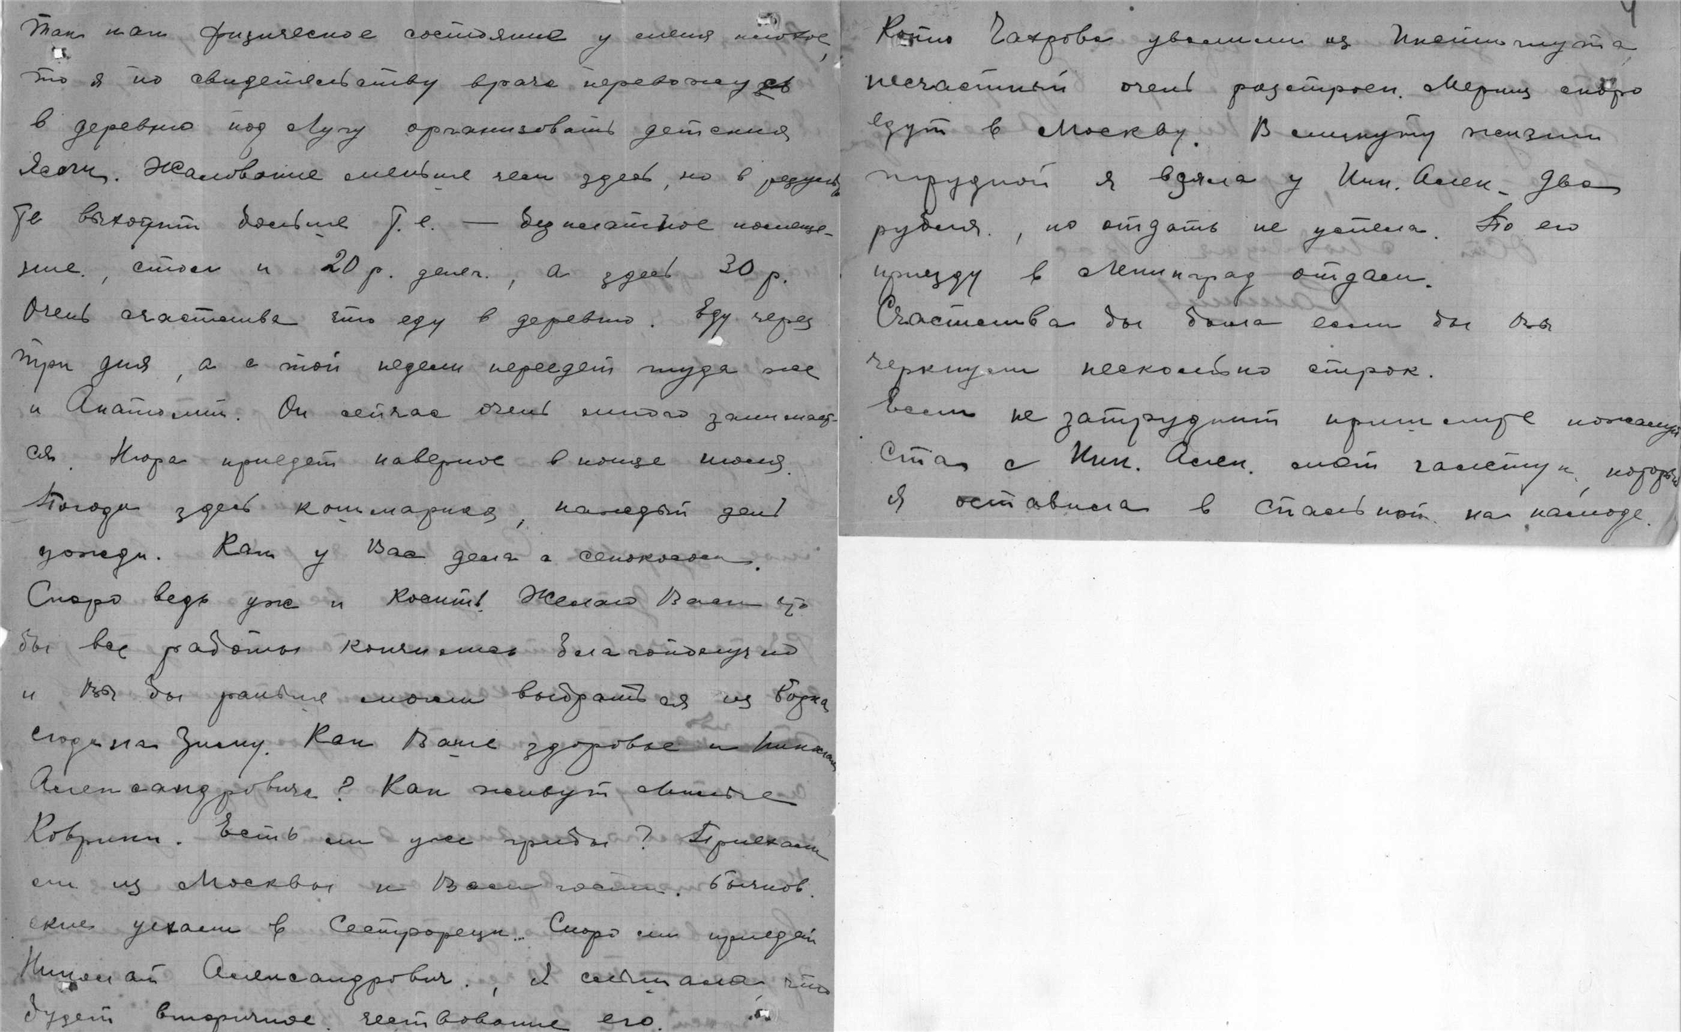 Так как физическое состояние у меня плохое,
то я по свидетельству врача перевожусь
в деревню под Лугу организовать детские
ясли. Жалование меньше чем здесь, но в результа
те выходит больше т.е. — безплатное помеще-
ние, стол и 20 р. денег, а здесь 30 р.
Очень счастлива что еду в деревню. Еду через
три дня, а с той недели переедет туда же
и Анатолий. Он сейчас очень много занимает-
ся. Нюра приедет наверное в конце июля.
Погода здесь кошмарная, каждый день
дожди. Как у Вас дела с сенокосом.
Скоро ведь уж и косить. Желаю Вам что
бы все работы кончились благополучно
и Вы бы раньше могли выбраться из Борка
сюда на зиму. Как Ваше здоровье и Николая
Александровича? Как живут милые
Коврики. Есть ли уже грибы? Приехали
ли из Москвы к Вам гости.
ские уехали в Сестрорецк. Скоро ли приедет
Николай Александрович., я слышала что
будет вторичное чествование его.
4
Катю Чахрова уволили из Института,
несчастный очень разстроен. скоро
едут в Москву. В минуту жизни
трудной я взяла у Ник. Алек. два
рубля, но отдать не успела. По его
приезду в Ленинград отдам.
Счастлива бы была если бы Вы
черкнули несколько строк.
Если не затруднит пришлите пожалуй
ста с Ник. Алек. мой галстук, который
я оставила в спальной на комоде.